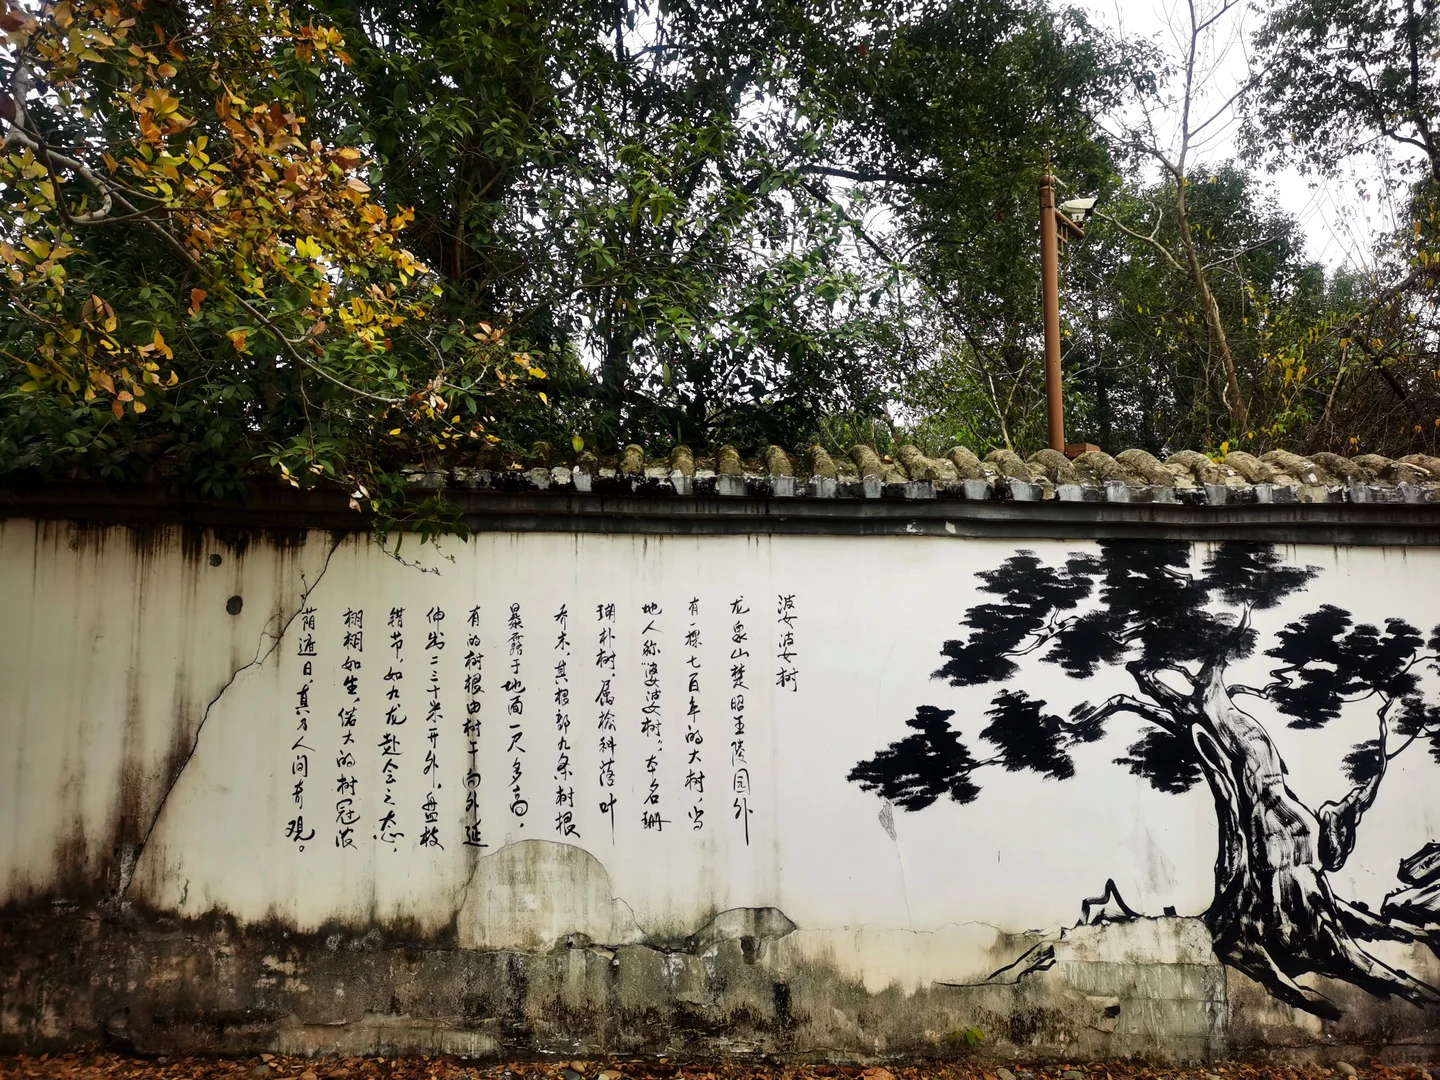 婆婆树
龙泉山楚昭王陵园外
有一棵七百年的大树，当
地人称"婆婆树"。本名珊
瑚朴树，属榆科落叶
乔木，其根部九条树根
暴露于地面一尺多高，
有的树根由树干向外延
伸出二三十米开外，盘枝
错节，如九龙赴会之态，
栩栩如生，偌大的树冠浓
荫遮日，真乃人间奇观。